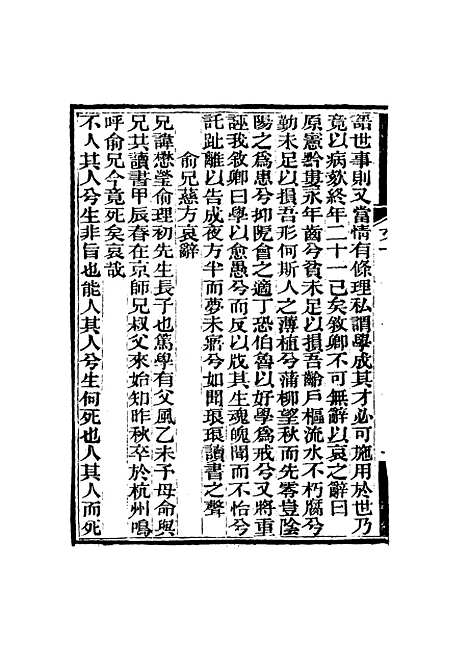 語世事則又當情有條理私謂學成其才必可施用於世乃
竟以病欬終年二十一已矣敘卿不可無辭以哀之辭曰
原憲黔婁永年齒兮貧未足以損吾齡戶樞流水不朽腐兮
勤未足以損吾形何斯人之薄植兮蒲柳望秋而先零豈陰
陽之爲患兮抑陒會之適丁恐伯魯以好學爲戒兮又將重
誣我敘卿曰學以愈愚兮而反以戕其生魂魄聞而不怡兮
託趾離以告成夜方半而夢未寤兮如聞琅琅讀書之聲
俞兄慈方哀辭
兄諱懋瑩俞理初先生長子也篤學有父風乙未予母命與
兄共讀書甲辰春在京師兄叔父來始知昨秋卒於杭州鳴
呼俞兄今竟死矣哀哉
不人其人兮生非旨也能人其人兮生何死也人其人而死